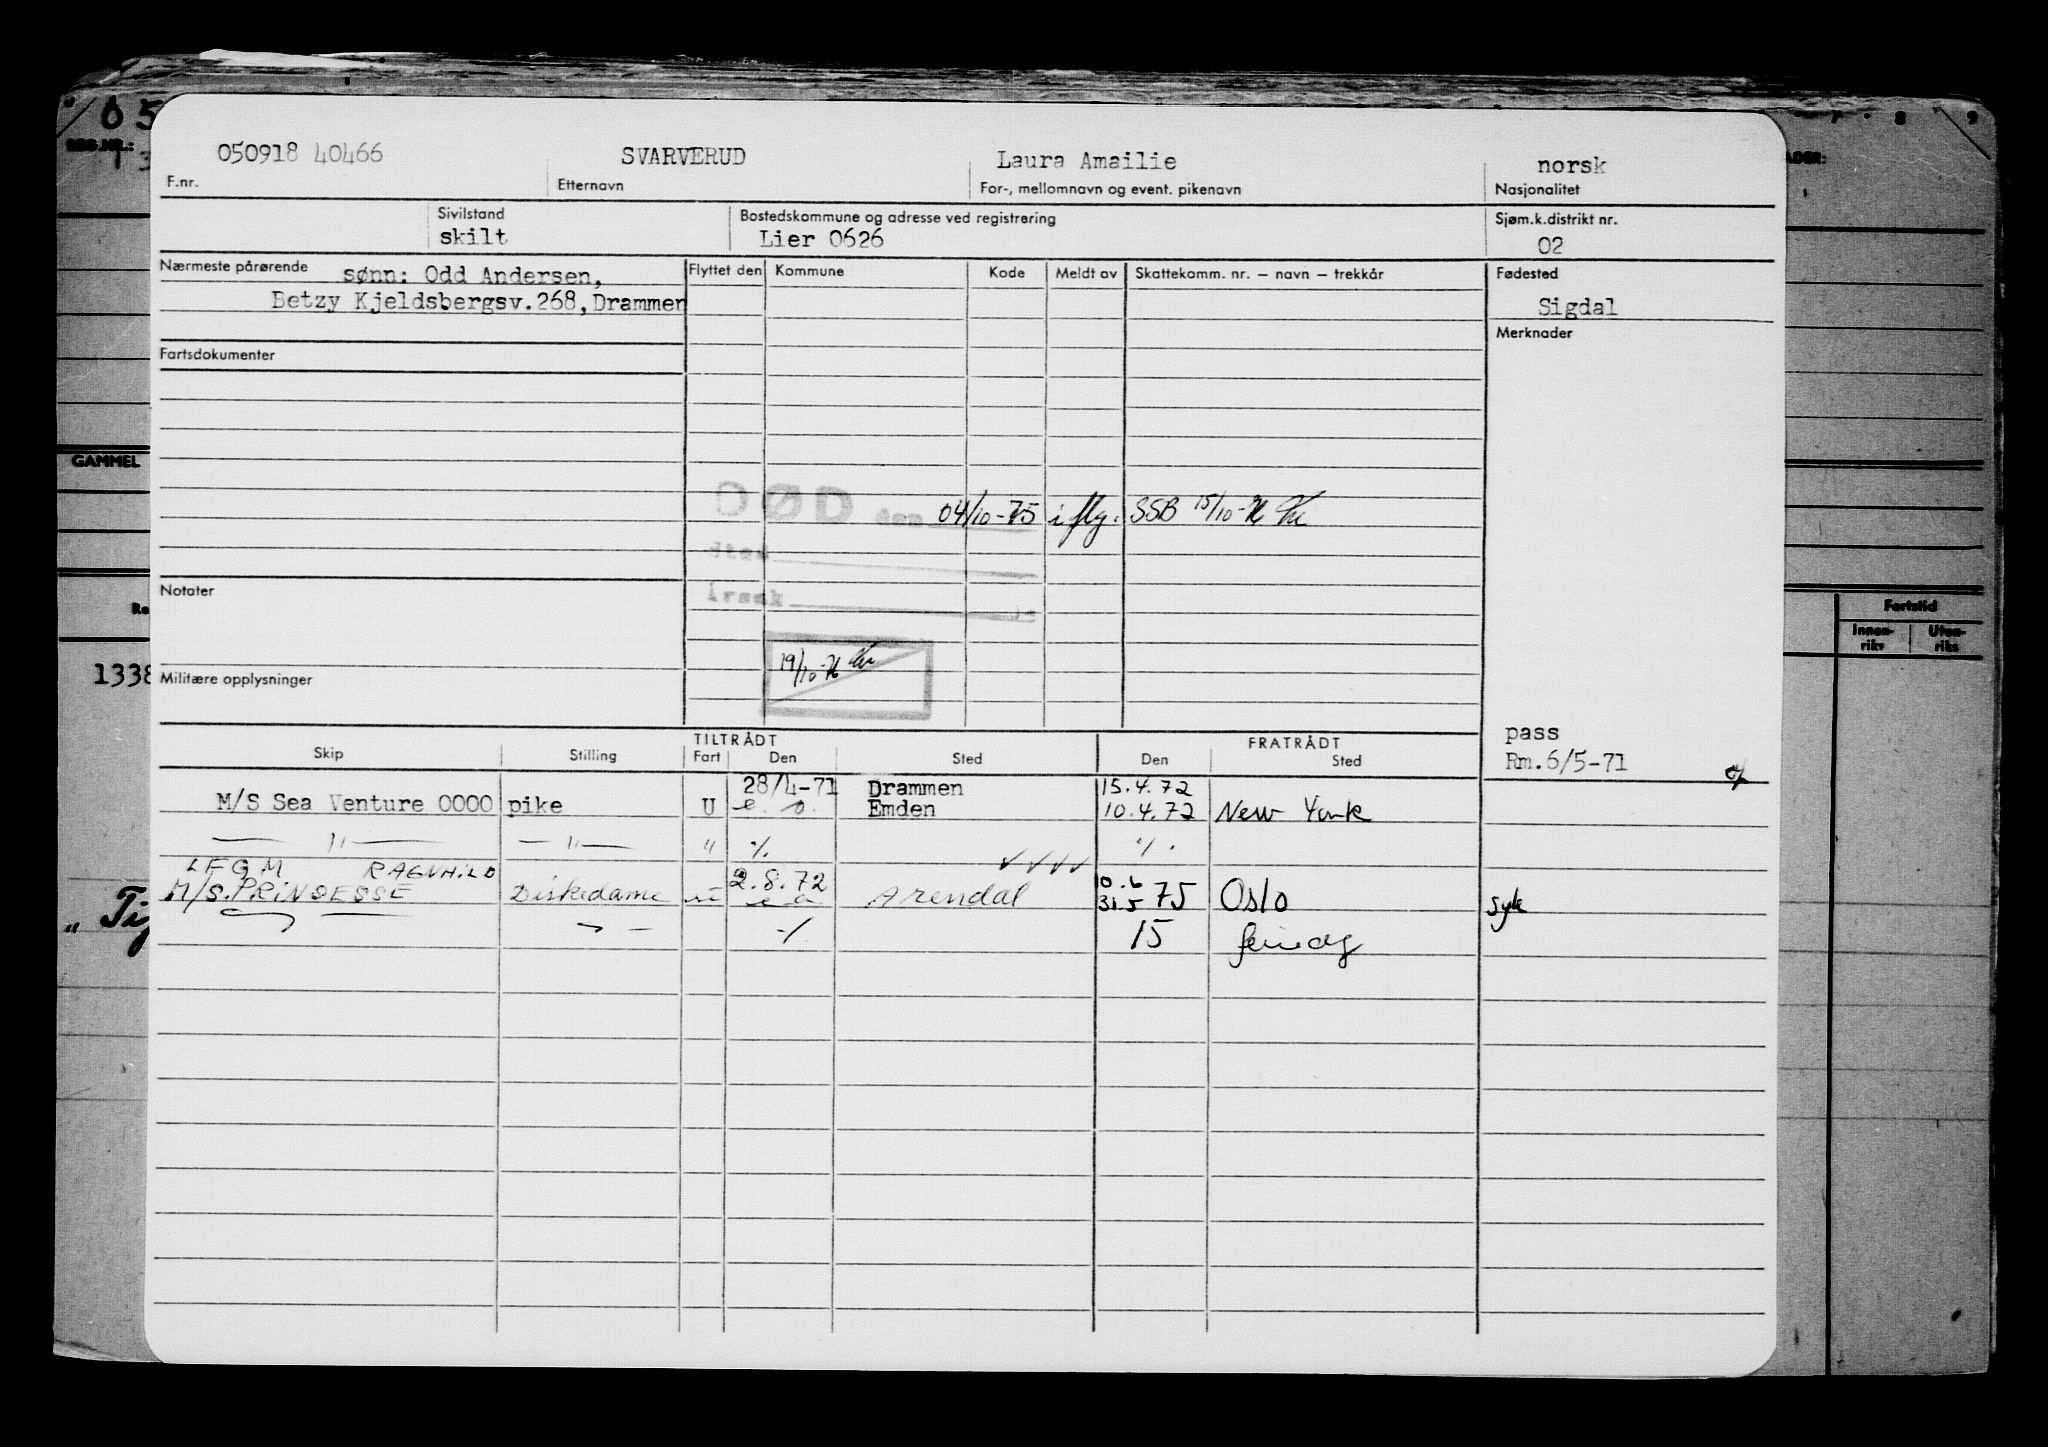 / 05
REG.NR.:
7 . 8 9
050918 40466 SVARVERUD Laura Amailie norsk
F.nr. Etternavn For-, mellomnavn og event. pikenavn Nasjonalitet
Sivilstand Bostedskommune og adresse ved registrering Sjøm.k.distrikt nr.
skilt Lier 0626 02
Nærmeste pårørende sønn: Odd Andersen, Flyttet den Kommune Kode Meldt av Skattekomm. nr. – navn – trekkår Fødested
Betzy Kjeldsbergsv.268, Drammen Sigdal
Merknader
Fartsdokumenter
GAMMEL
DØD den 04/10-75 iflg. SSB 15/10-76
sted
årsak
Notater
Fartstid
Innen-riks Uten-riks
19/10-76
1338
Militære opplysninger
pass
Rm.6/5-71
TILTRÅDT FRATRÅDT
Skip Stilling Fart Den Sted Den Sted
28/4-71 Drammen 15.4.72
M/S Sea Venture 0000 pike U e.o. Emden 10.4.72 New York
— " — — " — " %. %.
LFGM RAGNHILD ✓✓✓✓
M/S. PRINSESSE Diskedame u 2.8.72 Arendal 10.6 31.5 75 Oslo syk
15 feriedg